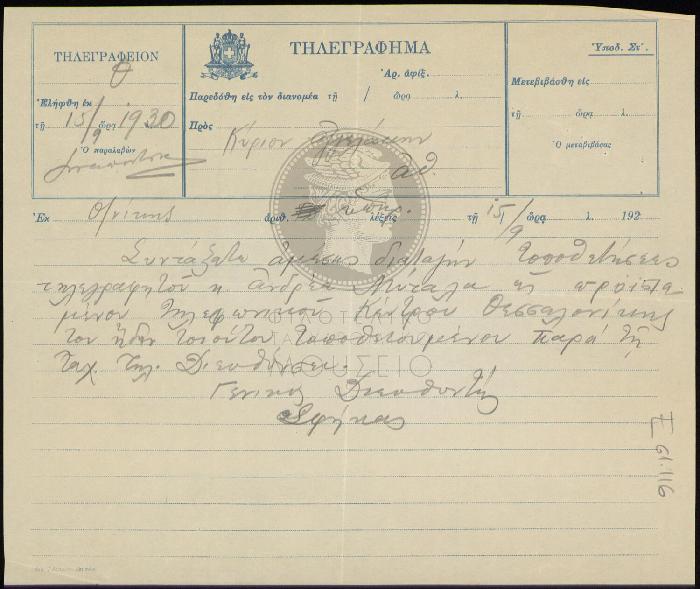 ΤΗΛΕΓΡΑΦΕΙΟΝ
Θ
Ἐλήφθη ἐκ
τῇ 15/9 ὥρα 1930
Ὁ παραλαβὼν
ΤΗΛΕΓΡΑΦΗΜΑ
Ἀρ. ἀφίξ.
Παρεδόθη εἰς τὸν διανομέα τῇ / ὥρα λ.
Πρὸς
Κύριον
Ἀθ.
Ὑποδ. Στʹ.
Μετεβιβάσθη εἰς
τῇ ὥρα λ.
Ὁ μεταβιβάσας
Ἐκ Θ/νίκης ἀριθ. λέξεις τῇ 15/9 ὥρα λ. 192
Συντάξατε ἀμέσως διαταγὴν τοποθετήσεως
τηλεγραφητοῦ κ Ἀνδρέα ὡς προϊστα
μένου τηλεφωνικοῦ Κέντρου Θεσσαλονίκης
του ἤδη τοιούτου τοποθετουμένου παρά τῇ
Ταχ. Τηλ. Διευθύνσει.
Γενικὸς Διευθυντής
Σφήκας
ΜΟΥΣΕΙΟ
Σ 61.116